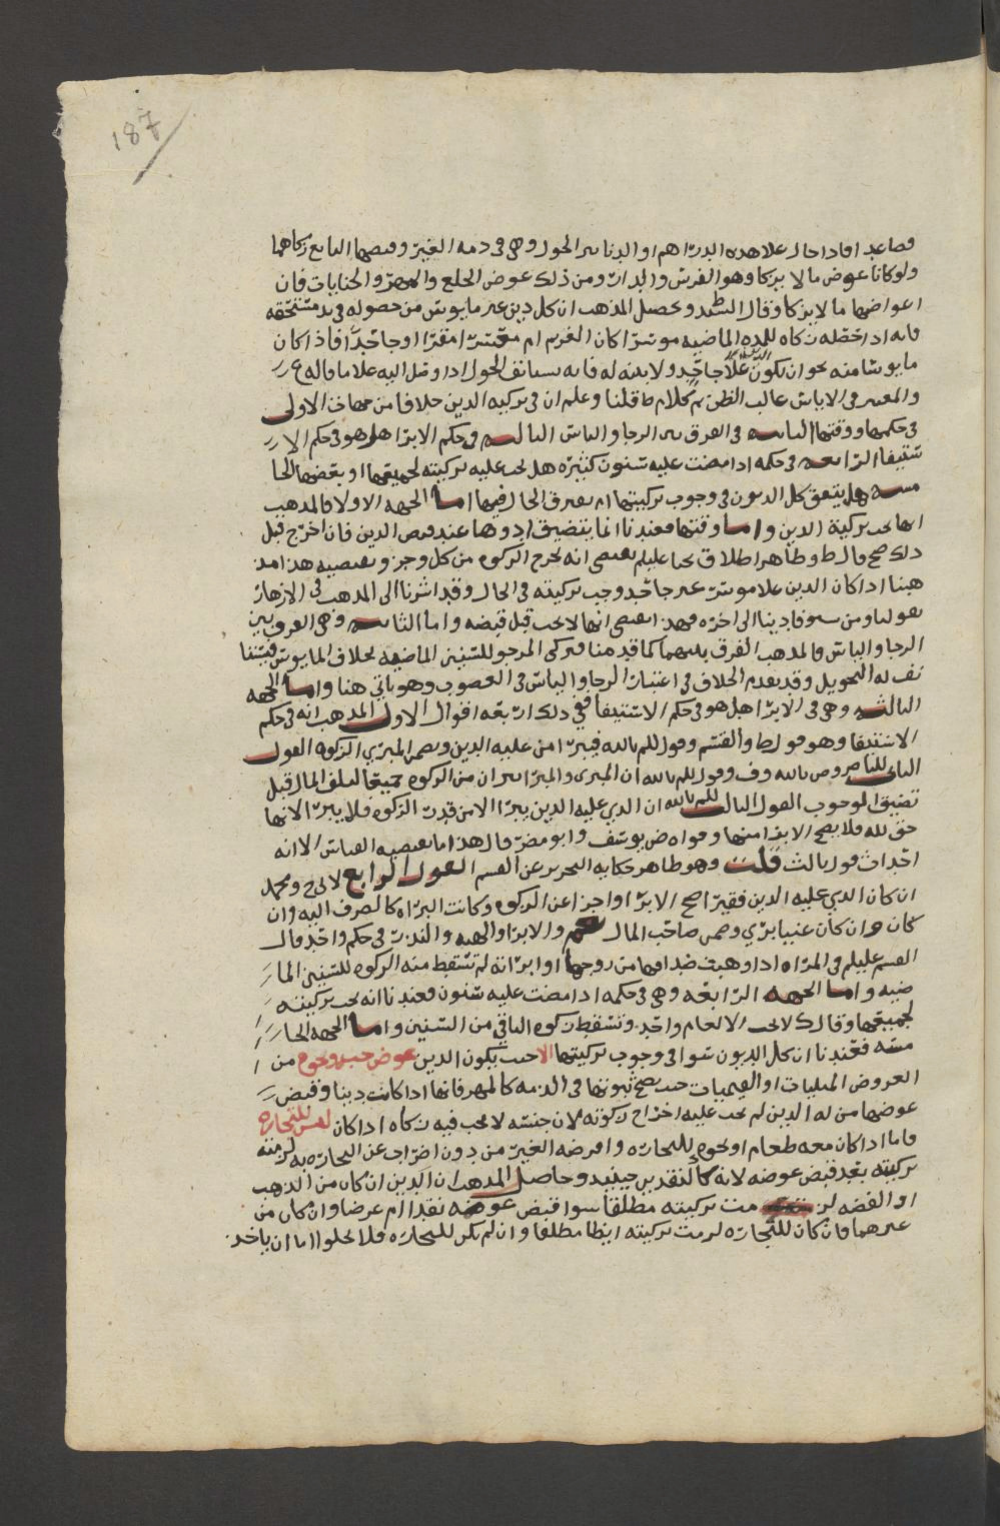 187
فصاعدا فاذا حال علا هذه الدراهم او الدنانير الحول وهي في ذمه الغير وقبضها البايع زكاهما
ولو كانا عوض ما لا يزكا وهو الفرش والدار ومن ذلك عوض الخلع والمهر والجنايات فان
اعواضها ما لا يزكا وقال السيد وتحصل المذهب ان كل دين غير مايوس من حصوله في يد مستحقه
فانه اذا حصله زكاه للمده الماضيه موسرا كان الغريم ام معسرا مقرا او جاحدا فاذا كان
مايوسا منه نحو ان يكون علا جاحد ولا بينه له فانه يستانف الحول اذا وصل اليه علا ما قاله ع
والمعتبر في الاياس غالب الظن تم كلام ط قلنا وعلم ان في تزكيه الدين خلافا من جهات الاولى
في حكمها ووقتها الثانيه في الفرق بين الرجا والياس الثالثه في حكم الابرا هل هو في حكم الا
ستيفا الرابعه في حكمه اذا مضت عليه سنون كثيره هل تجب عليه تزكيته لجميعها او بعضها الخا
مسه هل يتفق كل الديون في وجوب تزكيتها ام يفترق الحال فيها اما الجهه الاولا فالمذهب
انها تجب تزكية الدين واما وقتها فعندنا انما يتضيق ادوها عند قبض الدين فان اخرج قبل
ذلك صح قال ط وظاهر اطلاق يحيا عليلم يقتضي انه يخرج الزكوه من كل وجه ويقتضيه هذا
هبنا اذا كان الدين علا موسر غير جاحد وجب تزكيته في الحال وقد اشرنا الى المذهب في الازهار
بقولنا ومن استوفا دينا الى اخره فهذا يقتضي انها لا تجب قبل قبضه واما الثانيه وهي الفرق بين
الرجا والياس فالمذهب الفرق بينهما كما قدمنا فيزكى المرجو للسنين الماضيه بخلاف المايوس فيستا
نف له التحويل وقد تقدم الخلاف في اعتبار الرجا والياس في الغصوب وهو ياتي هنا واما الجهه
الثالثه وهي في الابرا هل هو في حكم الاستيفا ففي ذلك اربعه اقوال الاول المذهب انه في حكم
الاستيفا وهو قول ط والقسم وقول للم بالله فيبرا من عليه الدين ويضمن المبري الزكوه القول
الثاني للناصر وص بالله وف وقول للم بالله ان المبري والمبرا يبران من الزكوه جميعا لتلف المال قبل
تضيق الوجوب القول الثالث للم بالله ان الذي عليه الدين يبرا الا من قدر الزكوه فلا يبرا لانها
حق لله فلا يصح الابرا منها وقواه ض يوسف وابو مضر قال هذا ما يقتضيه القياس الا انه
احداث قول ثالث قلت وهو ظاهر حكايه التحرير عن القسم القول الرابع لابي ح ومحمد
ان كان الذي عليه الدين فقيرا صح الابرا واجزا عن الزكوه وكانت البراه كالصرف اليه وان
كان وان كان غنيا بري وضمن صاحب المال والابرا والهبه والنذر في حكم واحد قال
القسم عليلم في المراه اذا وهبت صداقها من زوجها او ابراته لم تسقط منه الزكوه للسنين الما
ضيه واما الجهه الرابعه وهي في حكمه اذا مضت عليه سنون فعندنا انه تجب تزكيته
لجميعها وقال ك لا تجب الا لعام واحد وتسقط زكوه الباقي من السنين واما الجهه الخا
مسه فعندنا ان كل الديون سوا في وجوب تزكيتها الا حيث يكون الدين عوض حب ونحوه من
العروض المثليات او القيميات حيث يصح ثبوتها في الذمه كالمهر فانها اذا كانت دينا وقبض
عوضها من له الدين لم تجب عليه اخراج زكوته لان جنسه لا تجب فيه زكاه اذا كان ليس للتجاره
فاما اذا كان معه طعام او نحوه للتجاره واقرضه الغير من دون اضراب عن التجاره به لزمته
تزكيته بعد قبض عوضه لانه كالنقدين حينيذ وحاصل المذهب ان الدين ان كان من الذهب
او الفضه لز مت تزكيته مطلقا سوا قبض عوضه نقدا ام عرضا وان كان من
غيرهما فان كان للتجاره لزمت تزكيته ايظا مطلقا وان لم يكن للتجاره فلا يخلوا اما ان ياخذ